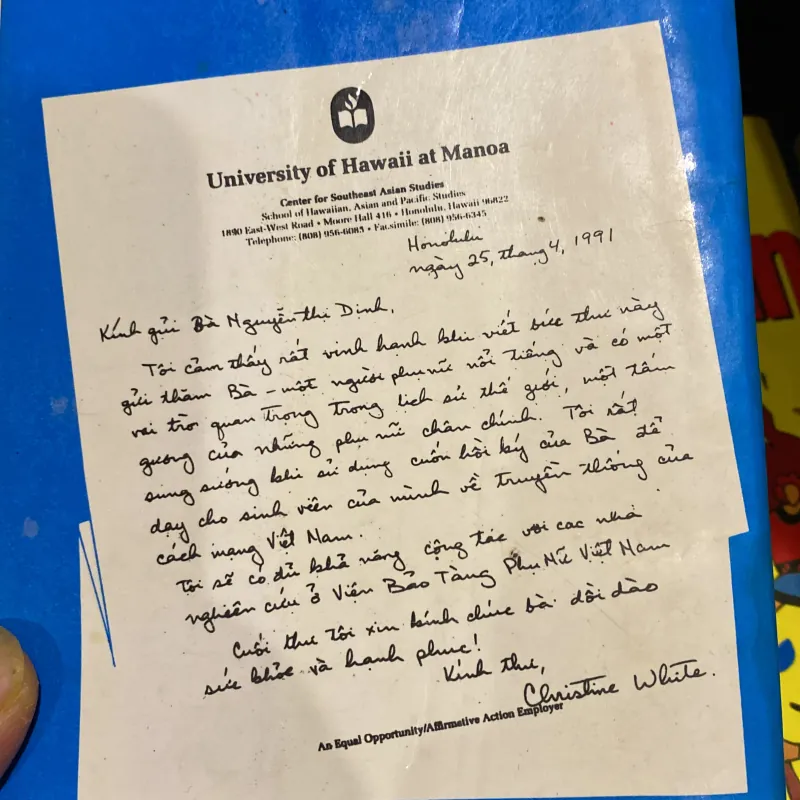 University of Hawaii at Manoa
Center for Southeast Asian Studies
School of Hawaiian, Asian and Pacific Studies
1890 East-West Road • Moore Hall 416 • Honolulu, Hawaii 96822
Telephone: (808) 956-6083 • Facsimile: (808) 956-6345
Honolulu
ngày 25, tháng 4, 1991
Kính gửi Bà Nguyễn thị Định,
Tôi cảm thấy rất vinh hạnh khi viết bức thư này
gửi thăm Bà – một người phụ nữ nổi tiếng và có một
vai trò quan trọng trong lịch sử thế giới, một tấm
gương của những phụ nữ chân chính. Tôi rất
sung sướng khi sử dụng cuốn hồi ký của Bà để
dạy cho sinh viên của mình về truyền thống của
cách mạng Việt Nam.
Tôi sẽ có đủ khả năng cộng tác với các nhà
nghiên cứu ở Viện Bảo Tàng Phụ Nữ Việt Nam
Cuối thư tôi xin kính chúc bà dồi dào
sức khỏe và hạnh phúc!
Kính thư,
Christine White.
An Equal Opportunity/Affirmative Action Employer